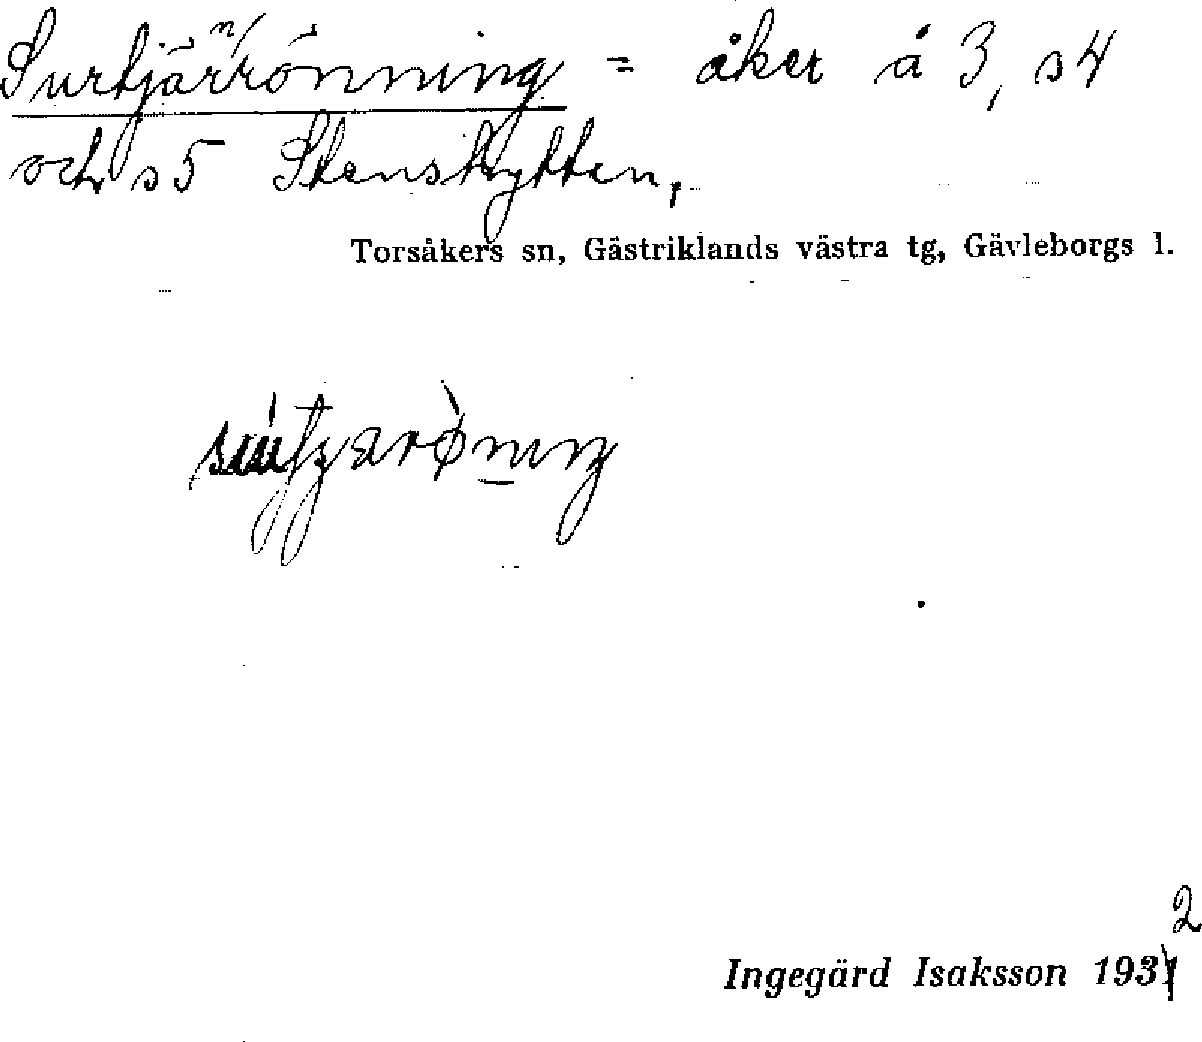 Surtjärnrönning = åker å 3, s4
och s5 Stenskytten,
Torsåkers sn, Gästriklands västra tg, Gävleborgs l.
2
Ingegärd Isaksson 1931